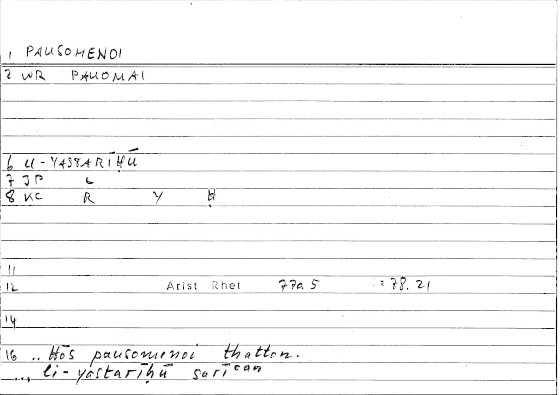 1 PAUSOMENOI
2 WR PAUOMAI
6 LI-YASTARĪḤŪ
7 JP L
8 KC R Y Ḥ
11
12 Arist Rhet 77a5 :78.21
14
16 .. Hōs pausomenoi thatton.
... li-yastarīḥū sarīcan